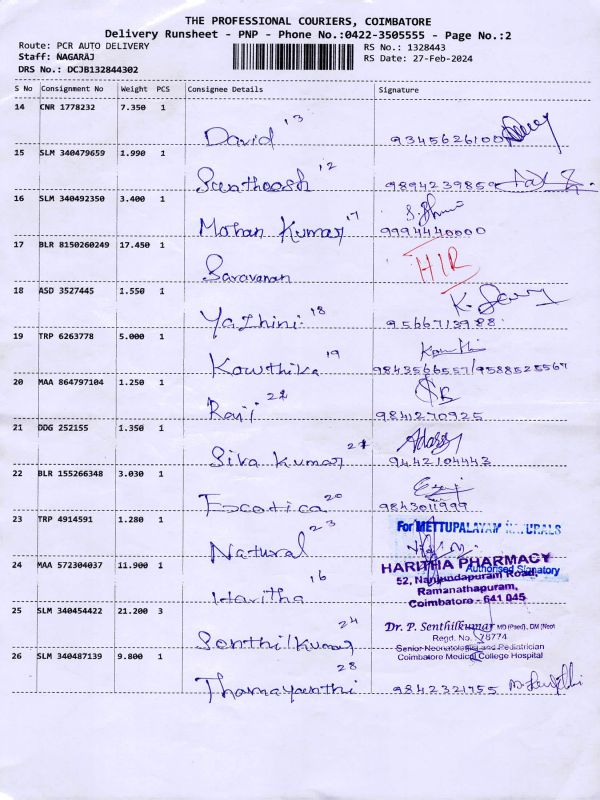 THE PROFESSIONAL COURIERS, COIMBATORE
Delivery Runsheet - PNP - Phone No.:0422-3505555 - Page No.:2
Route: PCR AUTO DELIVERY RS No.: 1328443
Staff: NAGARAJ RS Date: 27-Feb-2024
DRS No.: DCJB132844302
S No Consignment No Weight PCS Consignee Details Signature
14 CNR 1778232 7.350 1
David 13 9345626100
15 SLM 340479659 1.990 1
Swathoosh 12 9894239859
16 SLM 340492350 3.400 1
Mohan Kumar 17 9994440000
17 BLR 8150260249 17.450 1
Saravanan HIR
18 ASD 3527445 1.550 1
Yazhini 18 9566713988
19 TRP 6263778 5.000 1
Kowthika 19 9843566557/9588525567
20 MAA 864797104 1.250 1
Raji 22 9841270925
21 DDG 252155 1.350 1
Siva Kumar 21 9442104443
22 BLR 155266348 3.030 1
Escotica 20 9843011999
23 TRP 4914591 1.280 1
Natural 23
For METTUPALAYAM NATURALS
Authorised Signatory
24 MAA 572304037 11.900 1
Haritha 16
HARITHA PHARMACY
52, Nanjundapuram Road,
Ramanathapuram,
Coimbatore - 641 045
25 SLM 340454422 21.200 3
Senthilkumar 24
Dr. P. Senthilkumar MD (Paed), DM (Neo)
Regd. No. 78774
Senior Neonatologist and Pediatrician
Coimbatore Medical College Hospital
26 SLM 340487139 9.800 1
Thamayanthi 28 9842321755